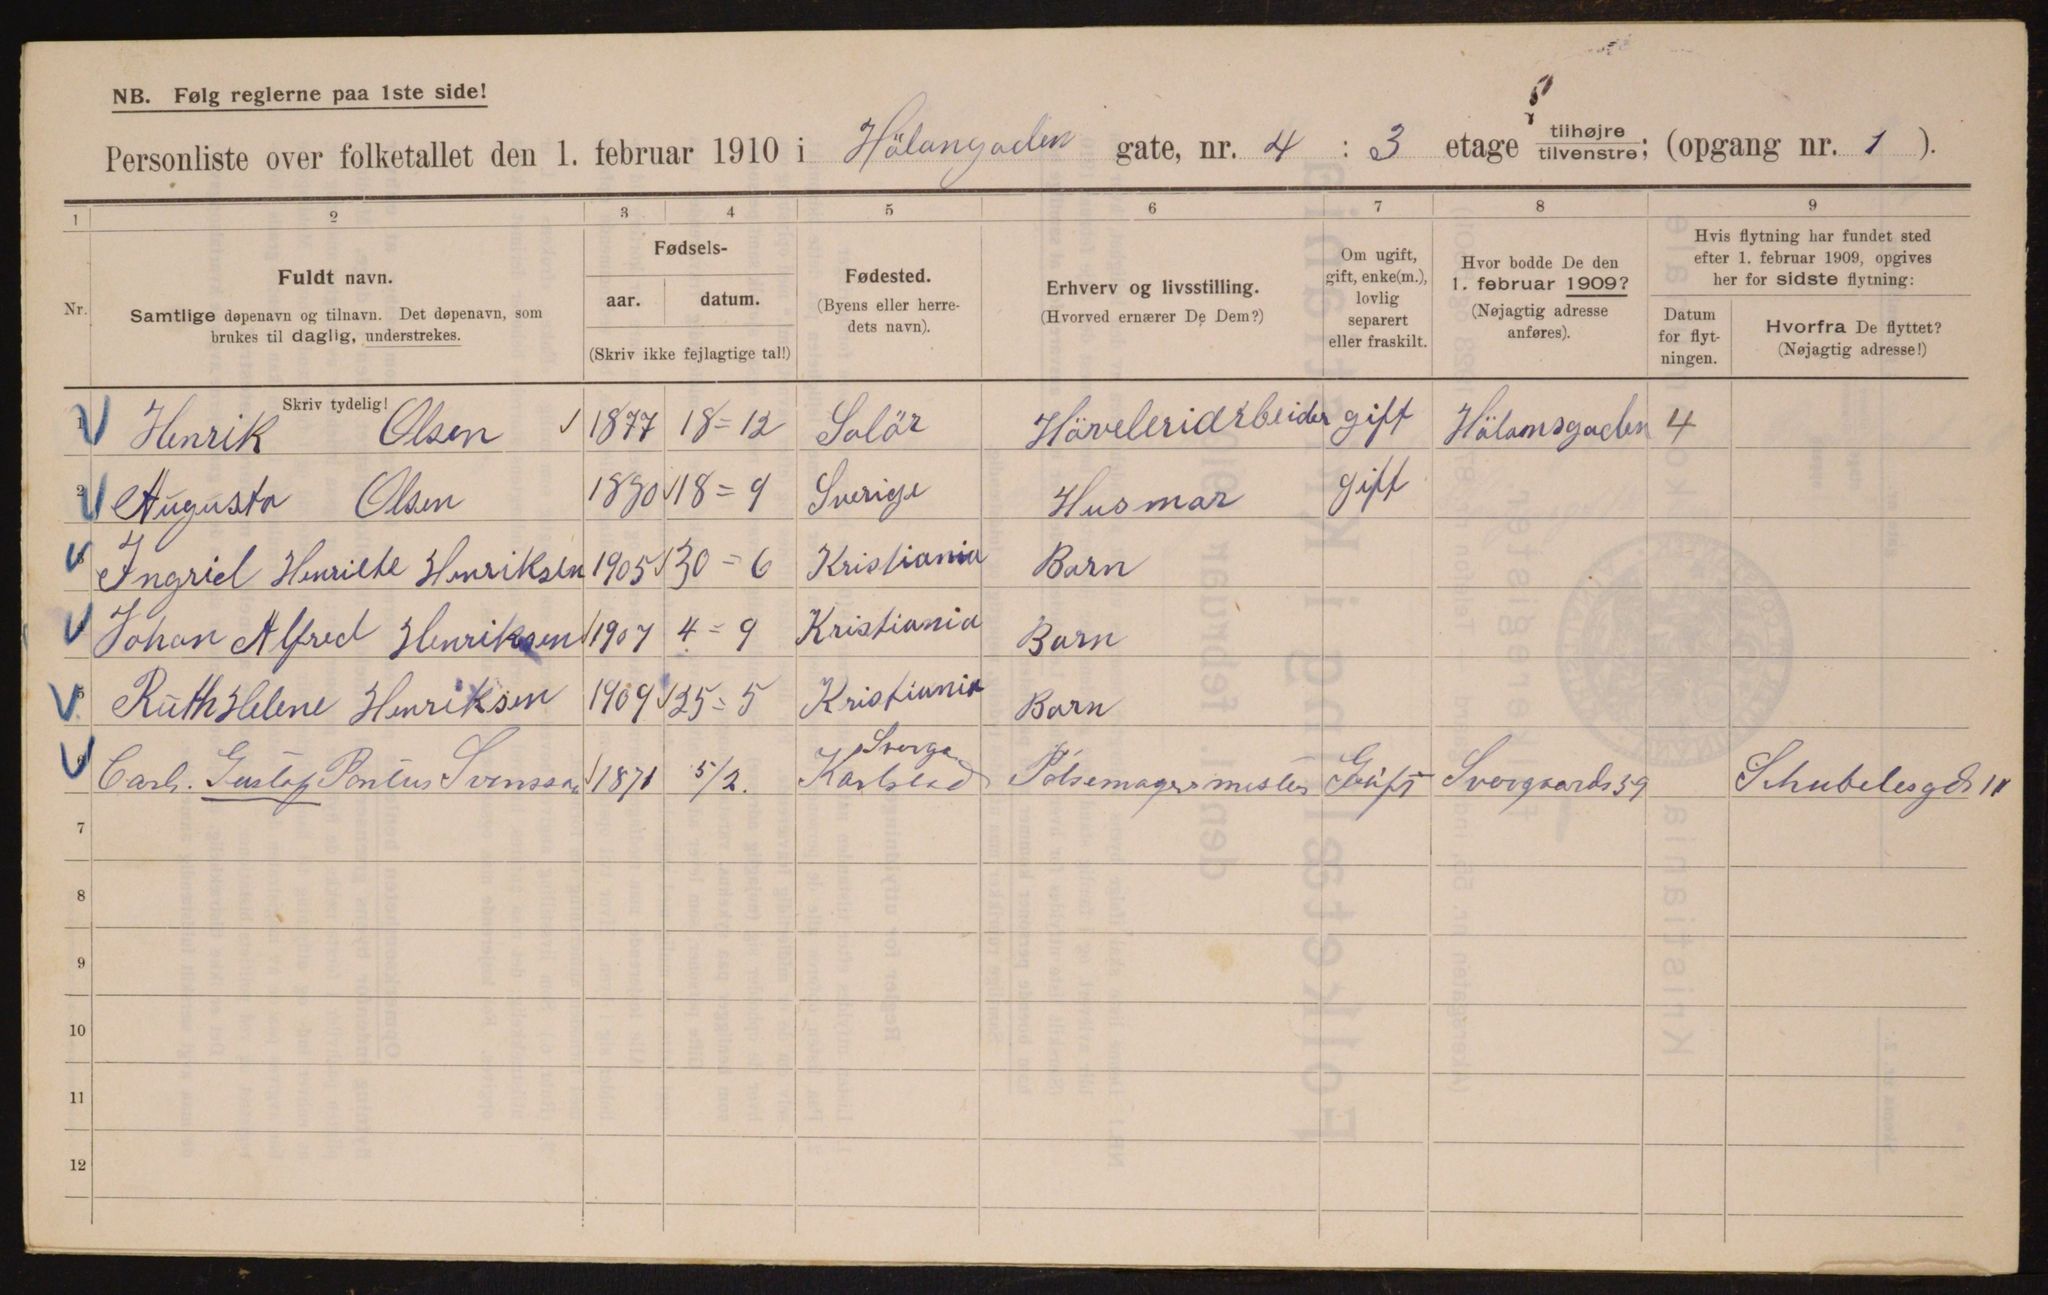 NB. Følg reglerne paa 1ste side!
Personliste over folketallet den 1. februar 1910 i Hölangaden gate, nr. 4 : 3 etage tilhøjre / tilvenstre; (opgang nr. 1 ).
1 2 3 4 5 6 7 8 9
Nr.
Fuldt navn.
Samtlige døpenavn og tilnavn. Det døpenavn, som
brukes til daglig, understrekes.
Fødsels-
aar. datum.
(Skriv ikke fejlagtige tal!)
Fødested.
(Byens eller herre-
dets navn).
Erhverv og livsstilling.
(Hvorved ernærer De Dem?)
Om ugift,
gift, enke(m.),
lovlig
separert
eller fraskilt.
Hvor bodde De den
1. februar 1909?
(Nøjagtig adresse
anføres).
Hvis flytning har fundet sted
efter 1. februar 1909, opgives
her for sidste flytning:
Datum
for flyt-
ningen.
Hvorfra De flyttet?
(Nøjagtig adresse!)
Skriv tydelig!
1 Henrik Olsen 1877 18=12 Solör Höveleriarbeider gift Hölamsgaden 4
2 Augusta Olsen 1880 18=9 Sverige Husmar gift
3 Ingried Henriete Henriksen 1905 30=6 Kristiania Barn
4 Johan Alfred Henriksen 1907 4=9 Kristiania Barn
5 Ruth Helene Henriksen 1909 25=5 Kristiania Barn
6 Carl. Gustaf Pontus Svensson 1871 5/2. Karlstad Sverge Pölsemagermester Gift Svergaards 39 Schubelesgd 11
7
8
9
10
11
12